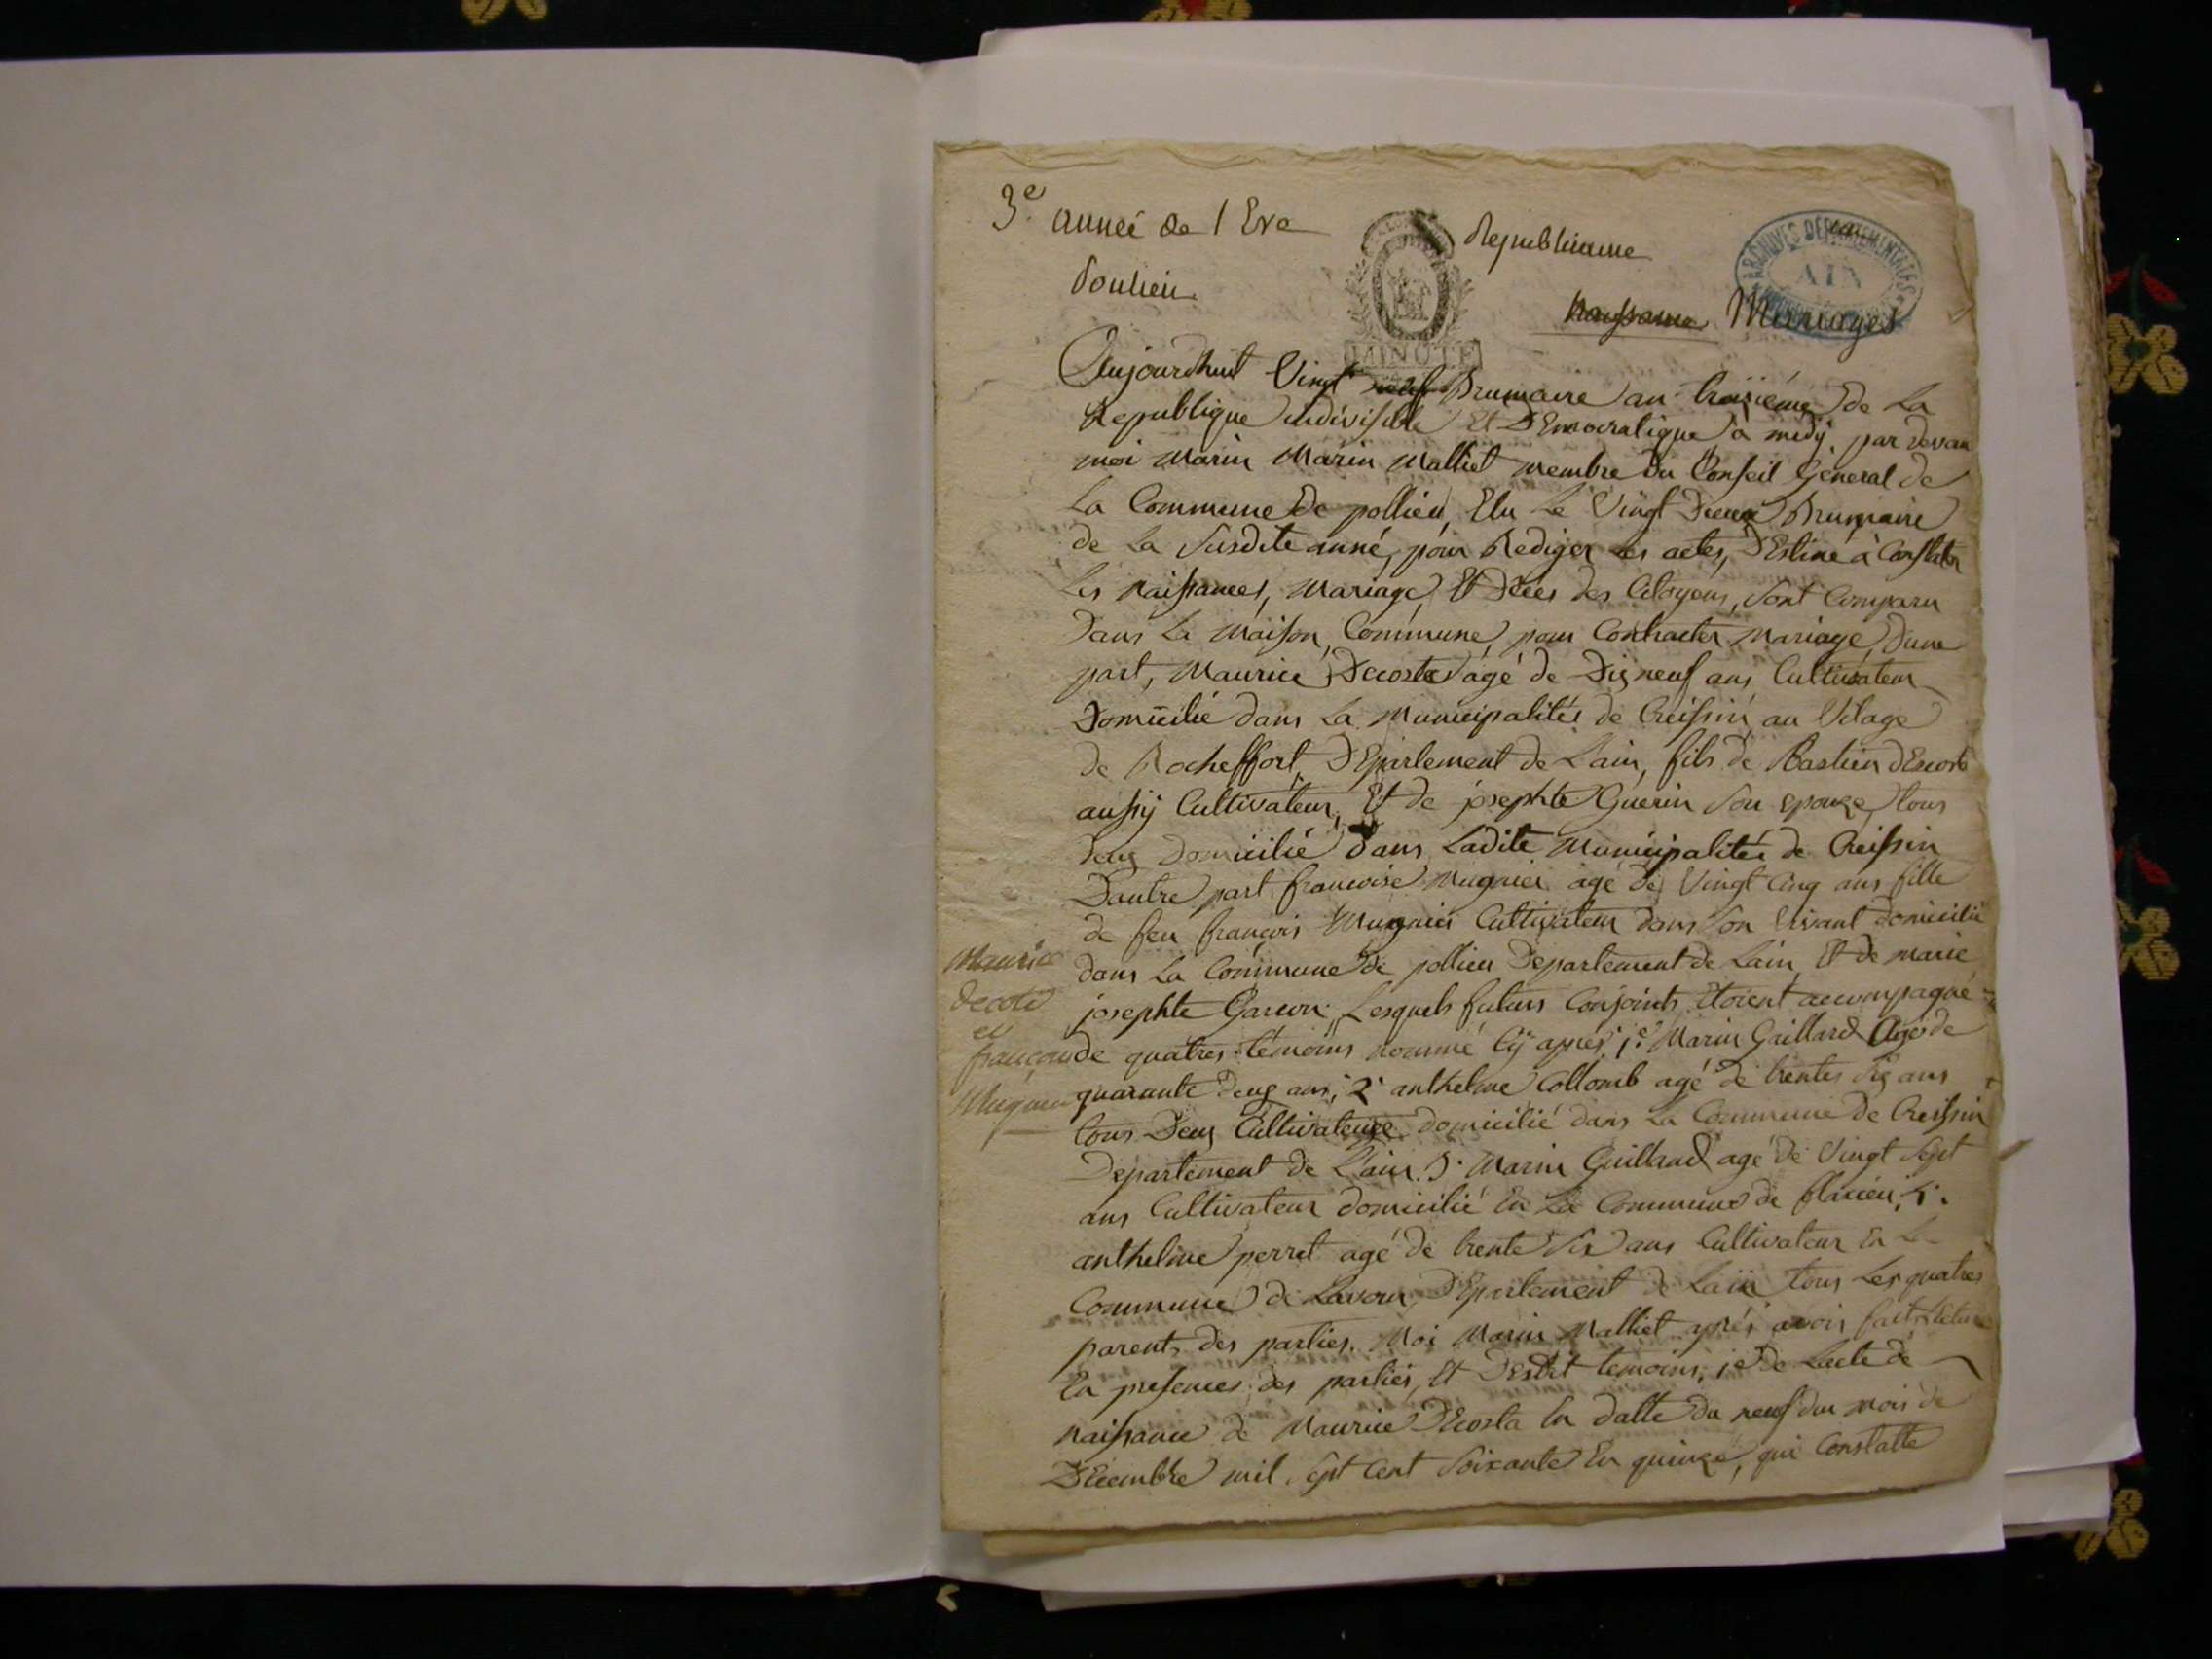 3e année de l Ere Republicaine
ARCHIVES DÉPARTEMENTALES
AIN
MINUTE
Naissance Mariages
Aujourdhuit Vingt neuf Brumaire an troisiéme de La
Republique indivisible Et DEmocratique à midÿ par devan
moi Marin Marin Malliet membre Du Conseil Géneral de
La Commune de pollieu, Elu Le Vingt Deux Brumaire
de La Susdite anné, pour Rediger les actes, DEstiné à Constater
Les Naissances, Mariage, Et Décés des Citoyens, Sont Comparu
Dans La Maison Commune, pour Contracter Mariage, Dune
part, Maurice Decosta agé de Dix neuf ans Cultivateur
Domicilié dans La Municipalités de Creissin, au Vilage
de Rocheffort, DEpartement de Lain, fils de Bastien dEcosta
aussÿ Cultivateur, Et de josephte Guerin Son epouze, tous
deux Domicilié Dans Ladite Municipalités de Creissin
Dautre part francoise Mugnier agé de Vingt Cinq ans fille
de feu françois Mugnier Cultivateur dans Son Vivant domicilié
dans La Commune de pollieu Departement de Lain Et de marie
josephte Garcon Lesquels futurs Conjoints Etoient accompagné
de quatres témoins nommé Cÿ aprés, 1e Marin Gaillard Agé de
quarante Deux ans, 2 anthelme Collomb agé de trentes dix ans
tous Deux Cultivateurs domicilié dans La Commune de Creissin
Departement de L'ain. 3. Marin Guilland agé de Vingt Sept
ans Cultivateur domicilié En La Commune de flaxieu, 4.
anthelme perret agé de trente Six ans Cultivateur En La
Commune de Lavour, DEpartement de Lain tous Les quatres
parents des parties. Moi Marin Malliet aprés avoir fait Lecture
En presences des parties, Et Desdit temoins, 1e De Lacte de
naissance de Maurice DEcosta En datte du neuf du mois de
DEcembre mil Sept Cent Soixante En quinze, qui Constatte
Maurice
Decoste
et
françoise
Mugnier